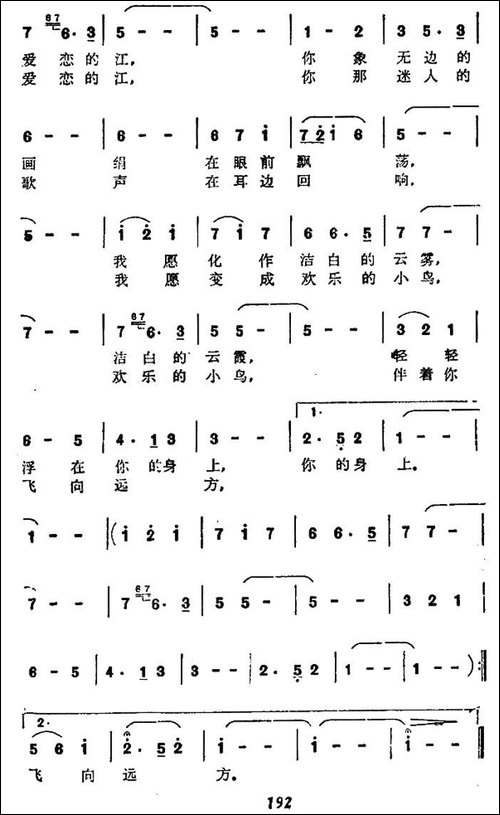 7 67 6·3 | 5 - - | 5 - - | 1 - 2 | 3 5·3
爱 恋的江, 你 象 无边的
爱 恋的江, 你 那 迷人的
6 - - | 6 - - | 6 7 i | 7 2 i 6 | 5 - -
画 绢 在眼前飘 荡,
歌 声 在耳边回 响,
5 - - | i 2 i | 7 i 7 | 6 6·5 | 7 7 -
我 愿 化 作 洁白的云雾,
我 愿 变 成 欢乐的小鸟,
7 - - | 7 67 6·3 | 5 5 - | 5 - - | 3 2 1
洁白的云霞, 轻 轻
欢乐的小鸟, 伴着你
1.
6 - 5 | 4·1 3 | 3 - - | 2·5 2 | 1 - -
浮 在你的身上, 你的身上。
飞 向远 方,
1 - - | (i 2 i | 7 i 7 | 6 6·5 | 7 7 -
7 - - | 7 67 6·3 | 5 5 - | 5 - - | 3 2 1
6 - 5 | 4·1 3 | 3 - - | 2·5 2 | 1 - - | 1 - - ) :||
2.
5 6 i | 2·5 2 | i - - | i - - | i - - ||
飞 向 远 方。
192